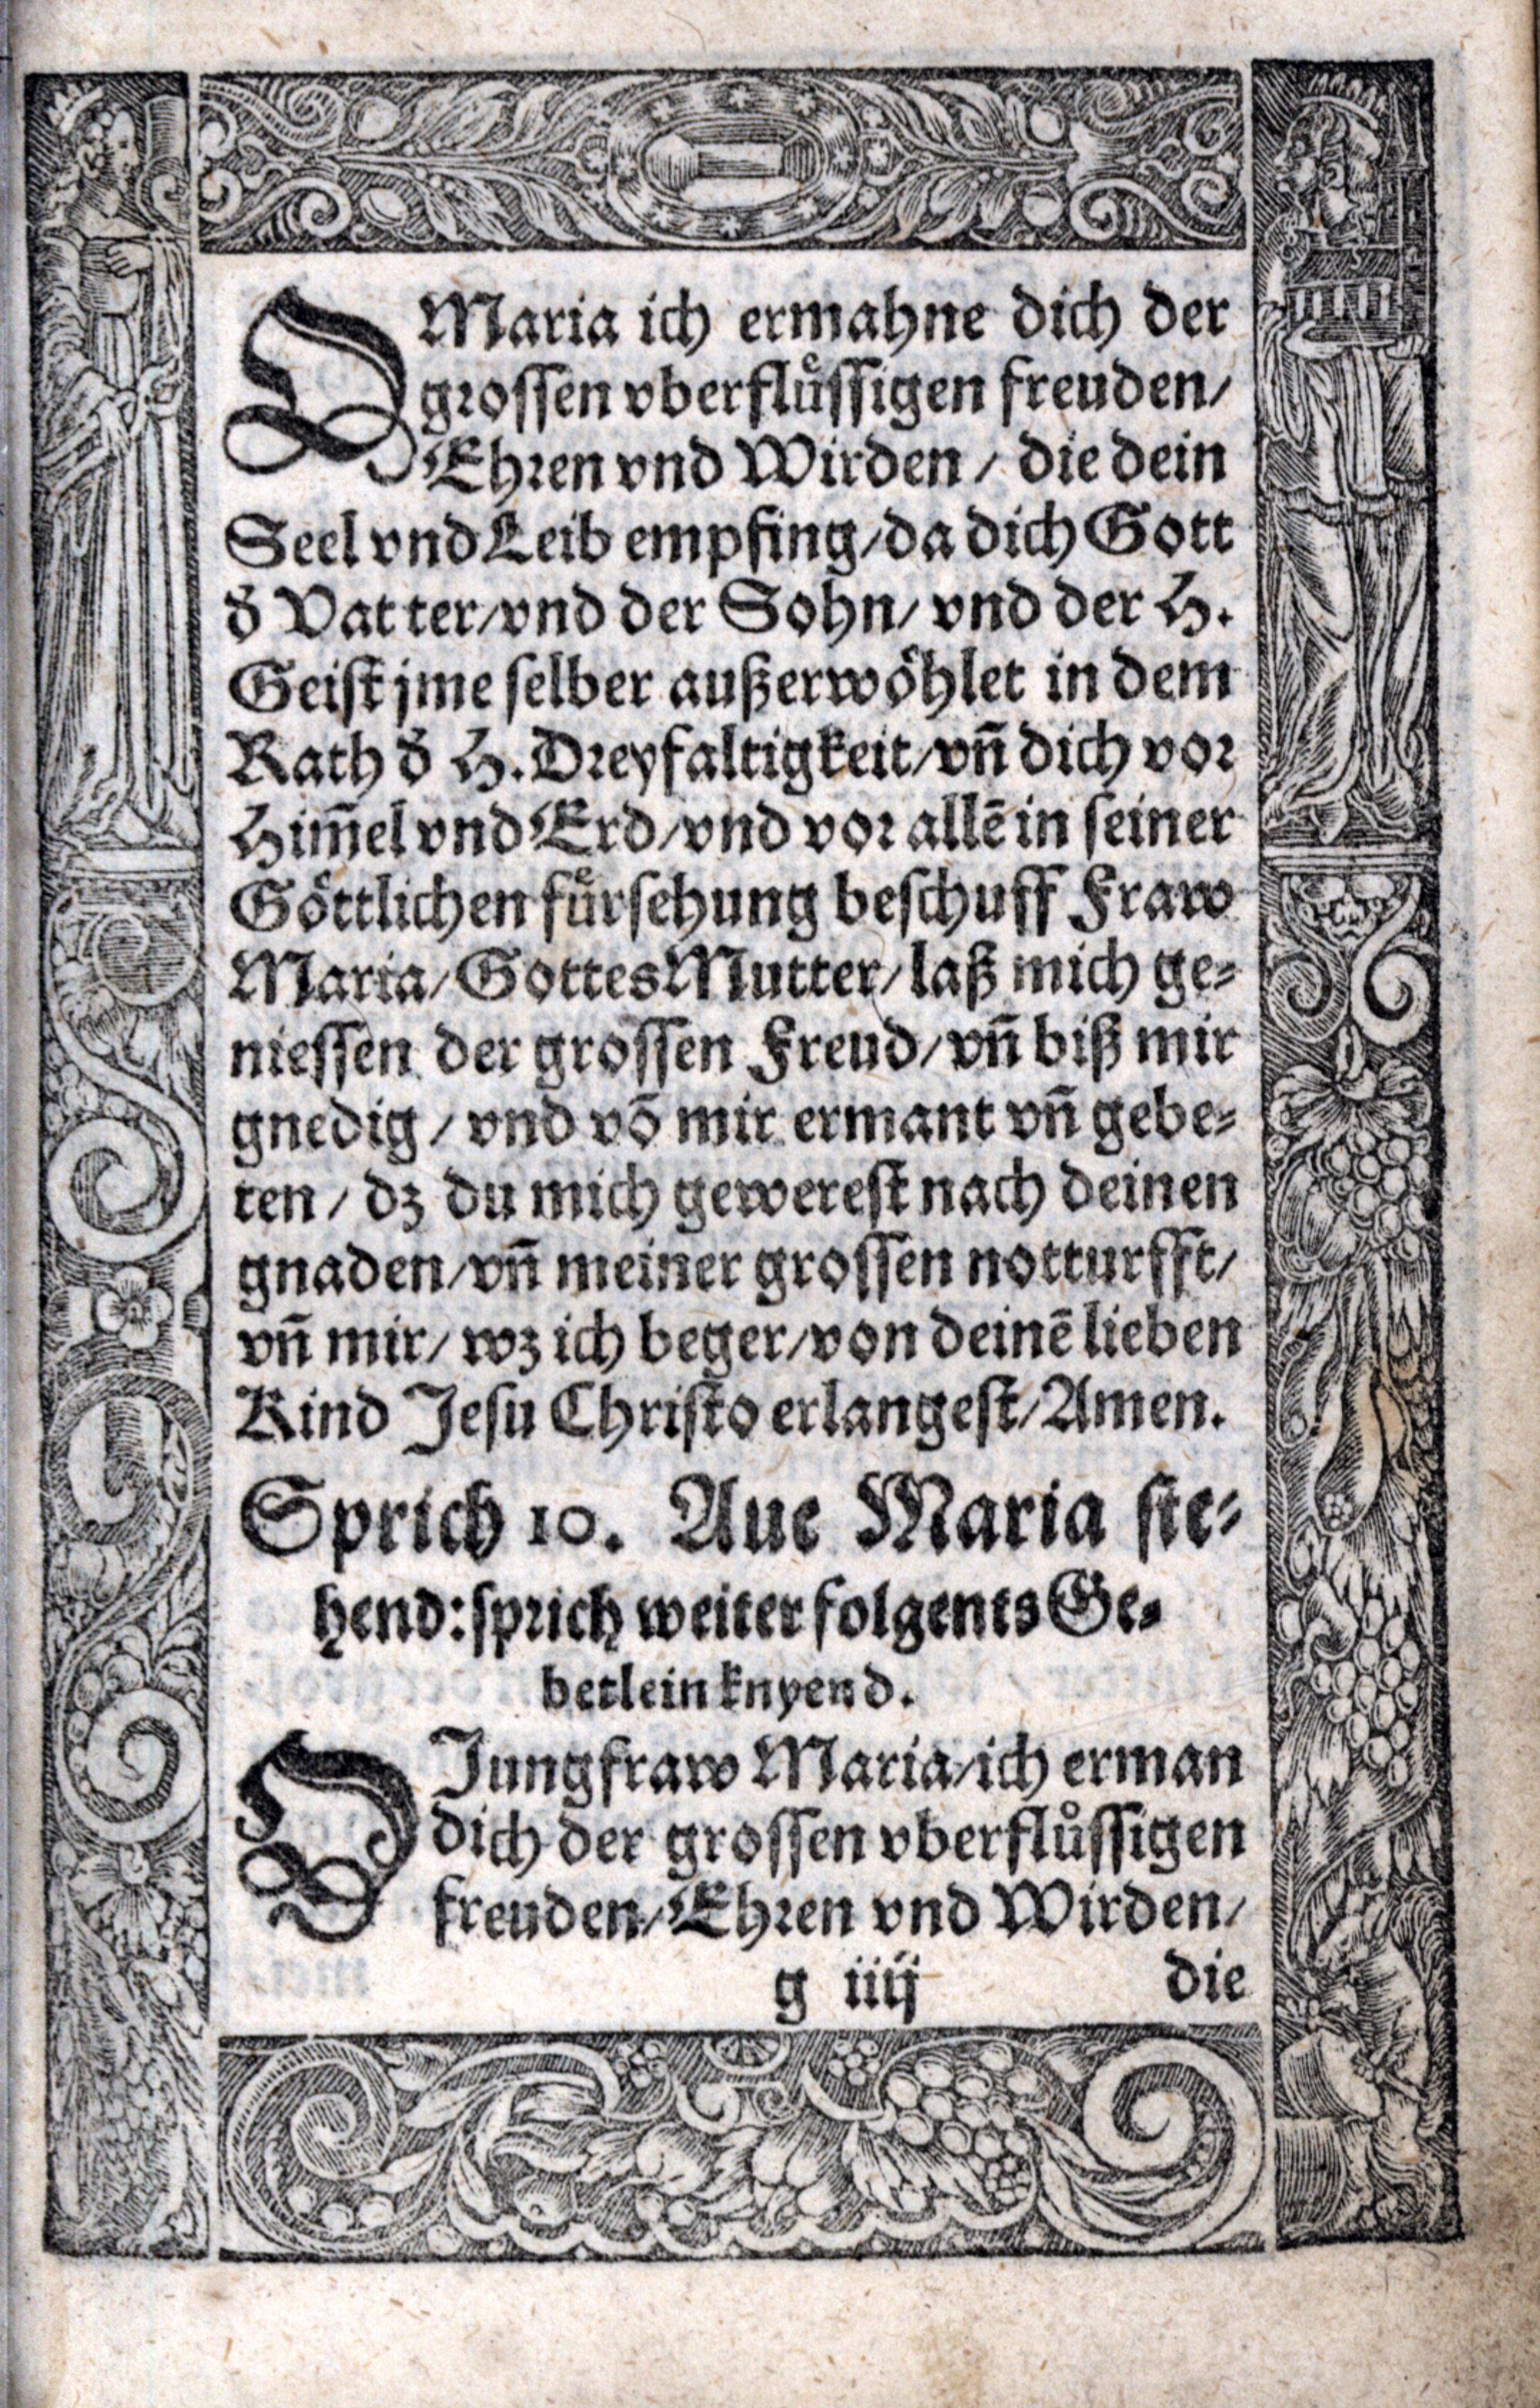 O Maria ich ermahne dich der
grossen vberflůssigen freuden/
Ehren vnd Wirden / die dein
Seel vnd Leib empfing/da dich Gott
d̄ Vatter/vnd der Sohn/ vnd der H.
Geist jme selber außerwoͤhlet in dem
Rath d̄ H. Dreyfaltigkeit/vn̄ dich vor
Him̄el vnd Erd/vnd vor allē in seiner
Goͤttlichen fuͤrsehung beschuff Fraw
Maria/ Gottes Mutter/ laß mich ge-
niessen der grossen Freud/ vn̄ biß mir
gnedig / vnd vō mir ermant vn̄ gebe-
ten / dz du mich gewerest nach deinen
gnaden/vn̄ meiner grossen notturfft/
vn̄ mir/ wz ich beger/von deinē lieben
Kind Jesu Christo erlangest/Amen.
Sprich 10. Aue Maria ste-
hend: sprich weiter folgents Ge-
betlein knyend.
O Jungfraw Maria/ich erman
dich der grossen vberflůssigen
freuden/Ehren vnd Wirden/
g iiij die